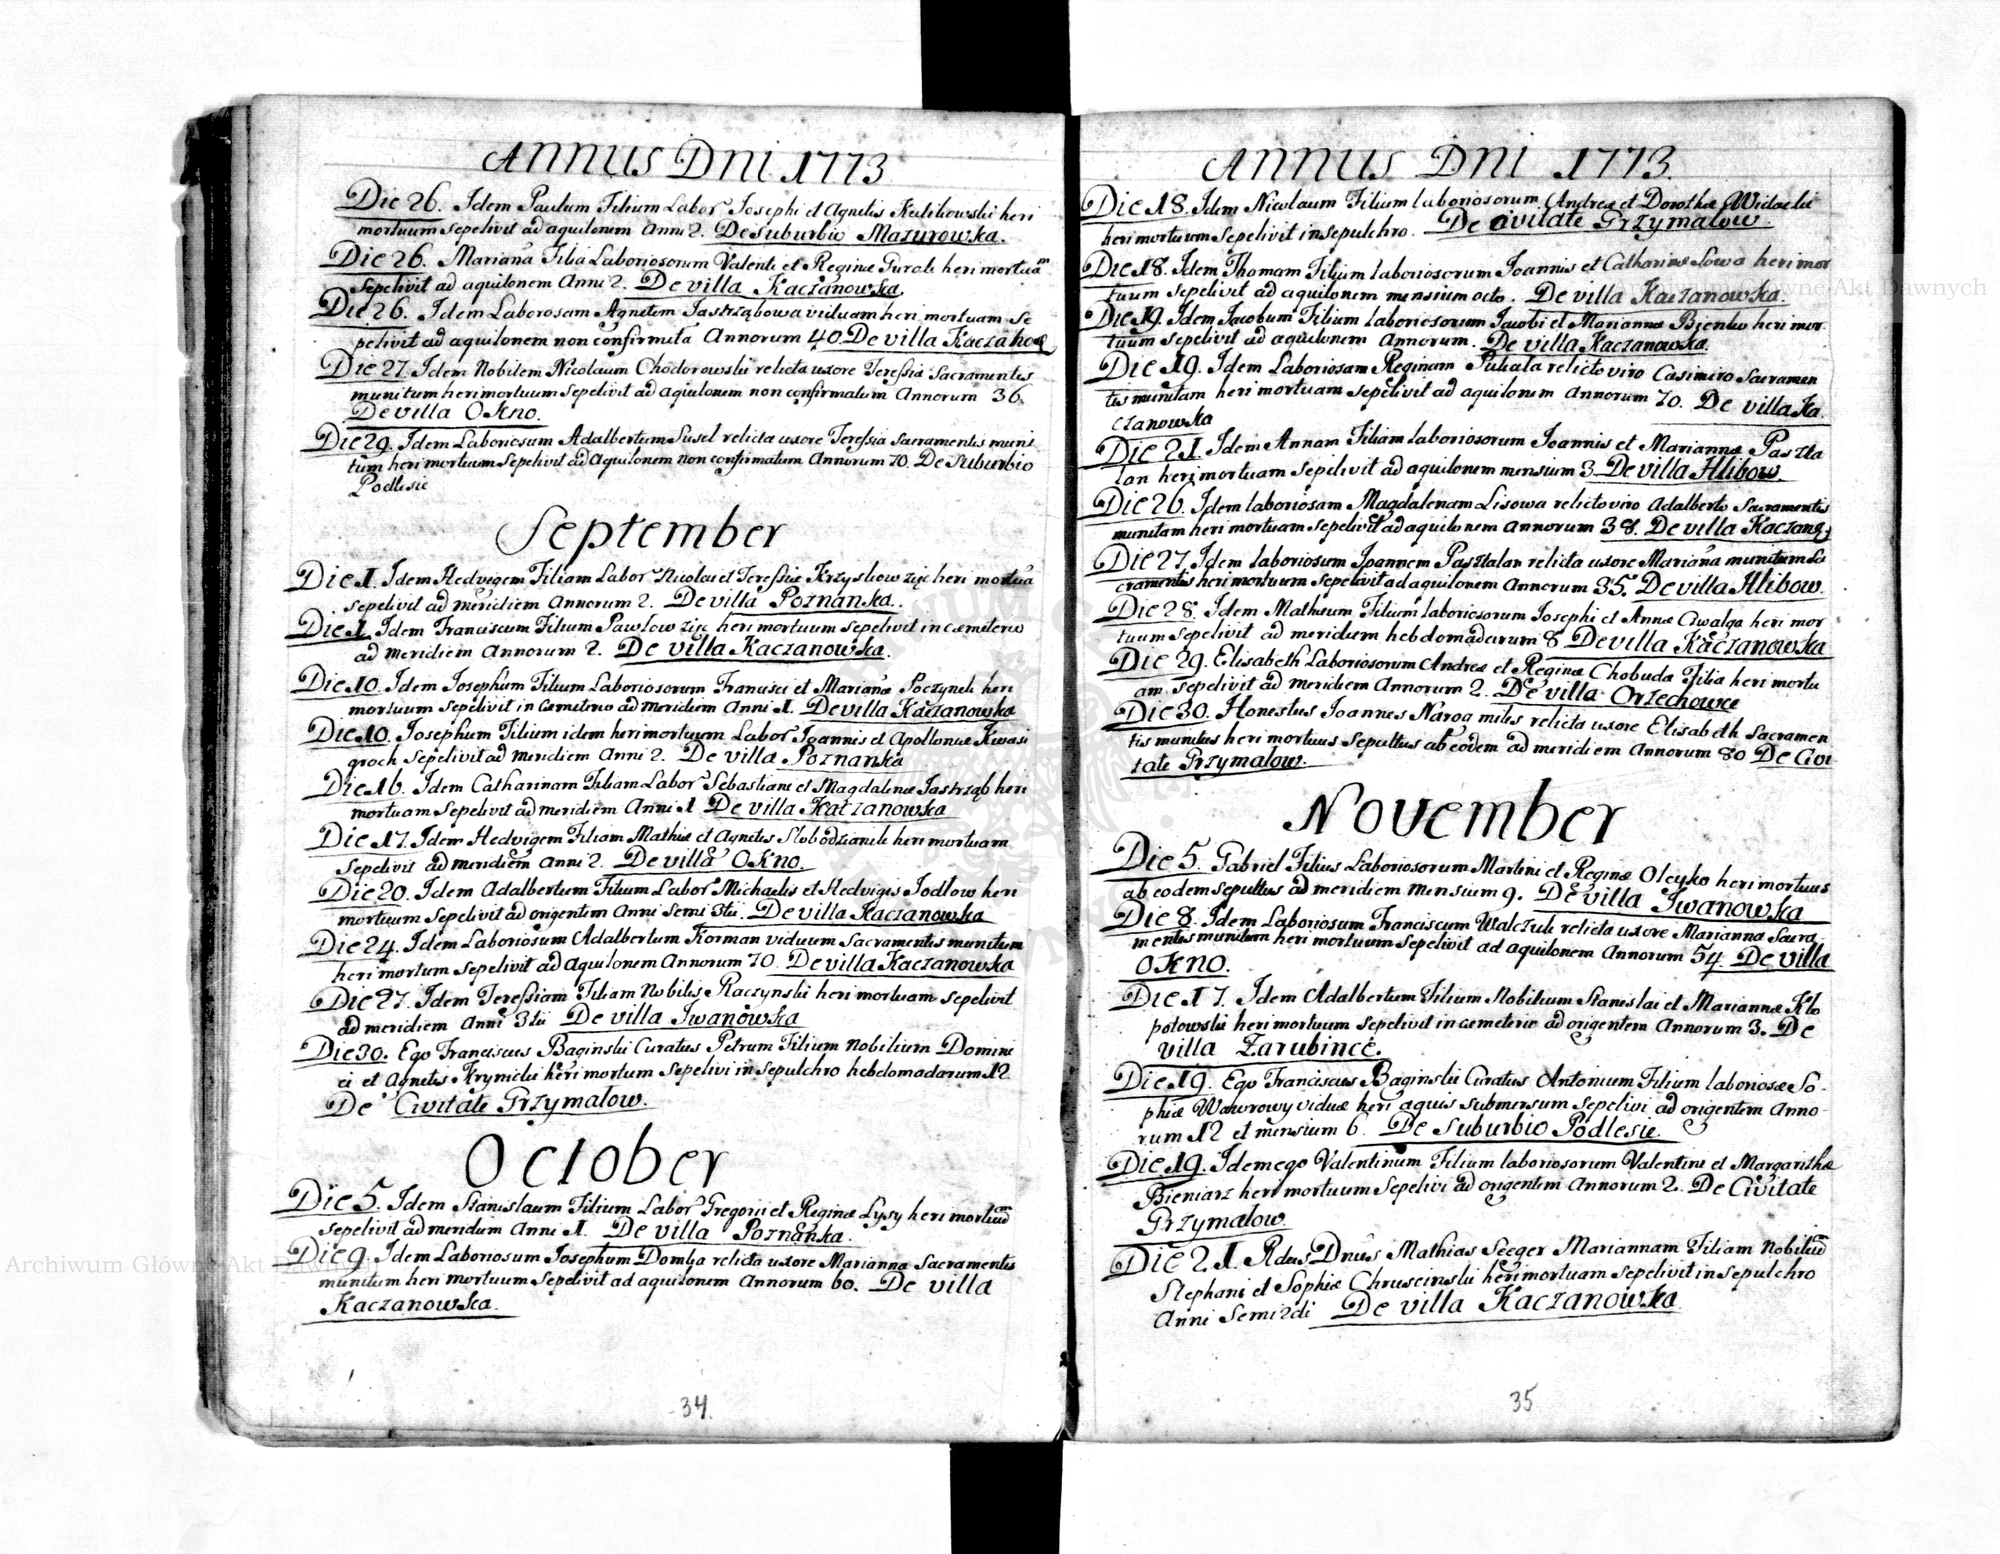 ANNUS DNI 1773
Die 26. Idem Paulum Filium Labor Josephi et Agnetis Kulikowski heri
mortuum sepelivit ad aquilonem Anni 2. De Suburbio Mazurowka.
Die 26. Mariana Filia Laboriosorum Valenti et Reginæ Gurali heri mortuam
Sepelivit ad aquilonem Anni 2. De villa Kaczanowka.
Die 26. Idem Laborosam Agnetem Jastrząbowa viduam heri mortuam Se
pelivit ad aquilonem non confirmata Annorum 40. De villa Kaczanow
Die 27. Idem Nobilem Nicolaum Chodorowski relicta uxore Teressia Sacramentis
munitum heri mortuum Sepelivit ad aquilonem non confirmatum Annorum 36.
De villa OKno.
Die 29. Idem Laboriosum Adalbertum Susel relicta uxore Teressia Sacramentis muni
tum heri mortuum Sepelivit ad Aquilonem non confirmatum Annorum 70. De Suburbio
Podlesie
September
Die 1. Idem Hedvigem Filiam Labor Nicolai et Teressiæ Krzyskow zięc heri mortua
sepelivit ad meridiem Annorum 2. De villa Poznanka.
Die 1. Idem Franciscum Filium Pawlow zięc heri mortuum sepelivit in cæmeterio
ad meridiem Annorum 2. De villa Kaczanowka.
Die 10. Idem Josephum Filium Laboriosorum Francisci et Marianæ Poczynek heri
mortuum Sepelivit in Cemeterio ad meridiem Anni 1. De villa Kaczanowka
Die 10. Josephum Filium idem heri mortuum Labor Joannis et Apolloniæ Kwasi
groch Sepelivit ad meridiem Anni 2. De villa Poznanka
Die 16. Idem Catharinam Filiam Labor Sebastiani et Magdalenæ Jastrząb heri
mortuam Sepelivit ad meridiem Anni 1 De villa Kaczanowka
Die 17. Idem Hedvigem Filiam Mathiæ et Agnetis Slobodzianik heri mortuam
Sepelivit ad meridiem Anni 2. De villa OKno.
Die 20. Idem Adalbertum Filium Labor Michaelis et Hedvigis Jodlow heri
mortuum Sepelivit ad origentem Anni Semi 3tii. De villa Kaczanowka
Die 24. Idem Laboriosum Adalbertum Korman viduum Sacramentis munitum
heri mortum Sepelivit ad Aquilonem Annorum 70. De villa Kaczanowka
Die 27. Idem Teressiam Filiam Nobilis Raczynski heri mortuam Sepelivit
ad meridiem Anni 3tii De villa Jwanowka
Die 30. Ego Franciscus Baginski Curatus Petrum Filium Nobilium Domini
ci et Agnetis Krynicki heri mortum Sepelivi in Sepulchro hebdomadarum 12.
De Civitate Grzymalow.
October
Die 5. Idem Stanislaum Filium Labor Gregorii et Reginæ Lysy heri mortuum
Sepelivit ad meridiem Anni 1. De villa Poznanka.
Die 9. Idem Laboriosum Josephum Domba relicta uxore Marianna Sacramentis
munitum heri mortuum Sepelivit ad aquilonem Annorum 60. De villa
Kaczanowka.
34.
ANNUS DNI 1773.
Die 18. Idem Nicolaum Filium laboriosorum Andreæ et Dorothæ Widacki
heri mortuum Sepelivit in Sepulchro. De Civitate Grzymalow.
Die 18. Idem Thomam Filium laboriosorum Joannis et Catharinæ Sowa heri mor
tuum Sepelivit ad aquilonem mensium octo. De villa Kaczanowka.
Die 19. Idem Jacobum Filium laboriosorum Jacobi et Mariannæ Bienko heri mor
tuum Sepelivit ad aquilonem Annorum. De villa Kaczanowka.
Die 19. Idem Laboriosam Reginam Pukala relicto viro Casimiro Sacramen
tis munitam heri mortuam sepelivit ad aquilonem Annorum 70. De villa Ka
czanowka
Die 21. Idem Annam Filiam laboriosorum Joannis et Mariannæ Paszta
lan heri mortuam sepelivit ad aquilonem mensium 3 De villa Hlibow.
Die 26. Idem laboriosam Magdalenam Lisowa relicto viro Adalberto Sacramentis
munitam heri mortuam sepelivit ad aquilonem Annorum 38. De villa Kaczanow
Die 27. Idem laboriosum Joannem Pasztalan relicta uxore Mariana munitum Sa
cramentis heri mortuum sepelivit ad aquilonem Annorum 35. De villa Hlibow.
Die 28. Idem Matheum Filium laboriosorum Josephi et Annæ Cwalga heri mor
tuum sepelivit ad meridiem hebdomadarum 8 De villa Kaczanowka
Die 29. Elisabeth Laboriosorum Andreæ et Reginæ Chobuda Filia heri mortu
am sepelivit ad meridiem Annorum 2. De villa Orzechowce
Die 30. Honestus Joannes Naroq miles relicta uxore Elisabeth Sacramen
tis munitus heri mortuus Sepultus ab eodem ad meridiem Annorum 80 De Civi
tate Grzymalow.
November
Die 5. Gabriel Filius Laboriosorum Martini et Reginæ Oleyko heri mortuus
ab eodem sepultus ad meridiem mensium 9. De villa Jwanowka
Die 8. Idem Laboriosum Franciscum Walczuk relicta uxore Marianna Sacra
mentis munitum heri mortuum sepelivit ad aquilonem Annorum 54. De villa
OKNO.
Die 17. Idem Adalbertum Filium Nobilium Stanislai et Mariannæ Klo
potowski heri mortuum sepelivit in cemeterio ad origentem Annorum 3. De
villa Zarubince.
Die 19. Ego Franciscus Baginski Curatus Antonium Filium laboriosæ So-
phiæ Wawrowy viduæ heri aquis submersum Sepelivi ad origentem Anno-
rum 12 et mensium 6. De Suburbio Podlesie.
Die 19. Idem ego Valentinum Filium laboriosorum Valentini et Margarithæ
Bieniarz heri mortuum Sepelivi ad origentem Annorum 2. De Civitate
Grzymalow.
Die 21. Rdus Dnus Mathias Seeger Mariannam Filiam Nobilium
Stephani et Sophiæ Chruscinski heri mortuam sepelivit in sepulchro
Anni Semi 2di De villa Kaczanowka
35
Archiwum Główne Akt Dawnych
Archiwum Główne Akt Dawnych